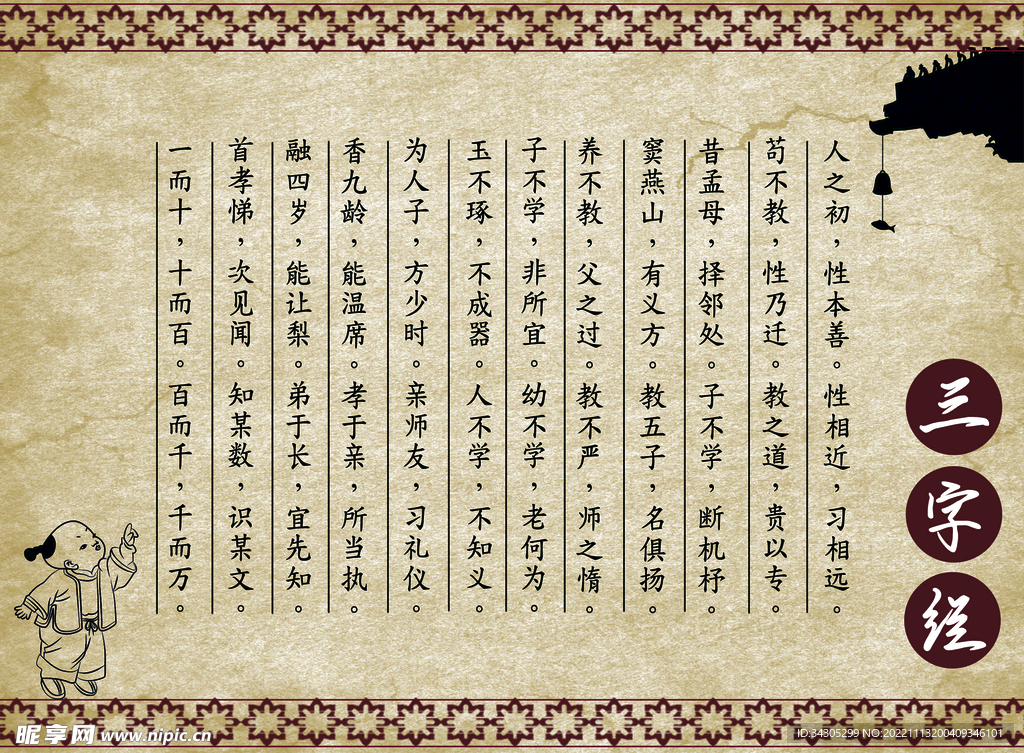 三字经
人之初，性本善。性相近，习相远。
苟不教，性乃迁。教之道，贵以专。
昔孟母，择邻处。子不学，断机杼。
窦燕山，有义方。教五子，名俱扬。
养不教，父之过。教不严，师之惰。
子不学，非所宜。幼不学，老何为。
玉不琢，不成器。人不学，不知义。
为人子，方少时。亲师友，习礼仪。
香九龄，能温席。孝于亲，所当执。
融四岁，能让梨。弟于长，宜先知。
首孝悌，次见闻。知某数，识某文。
一而十，十而百。百而千，千而万。
昵享网 www.nipic.cn
ID:34305299 NO:20221113200409346101